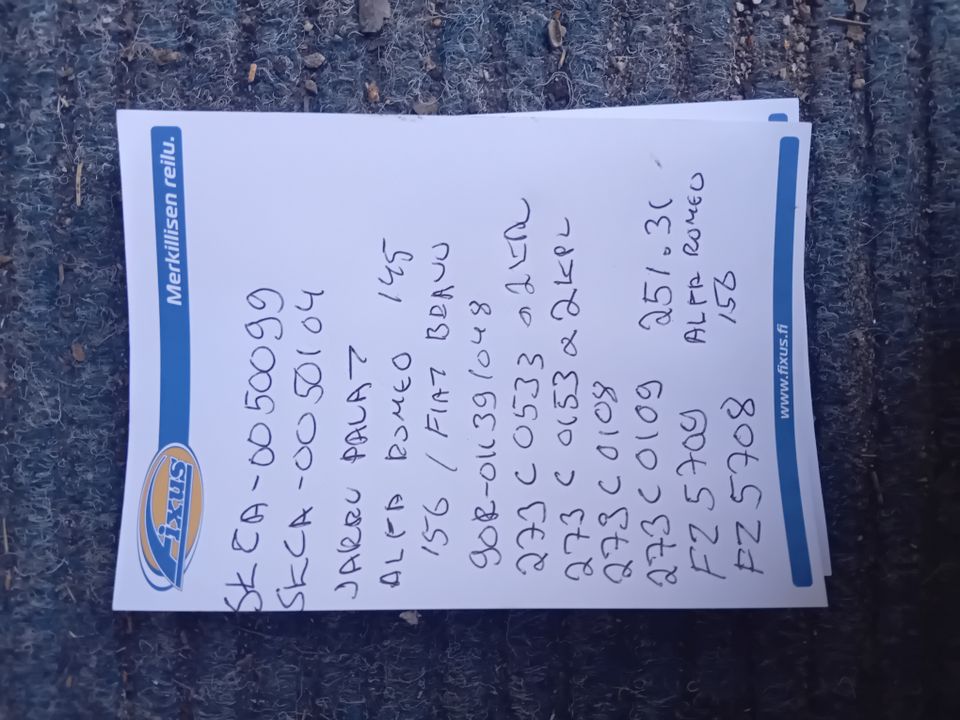 Fixus
Merkillisen reilu.
SKCA-0050099
SKCA-0050104
JARRU PALAT
ALFA ROMEO 145
156 / FIAT BRAVO
90R-01139/048
273 C 0533 a 2KPL
273 C 0153 a 2KPL
273 C 0108
273 C 0109 251.3(
FZ 5709 ALFA ROMEO
FZ 5708 156
www.fixus.fi